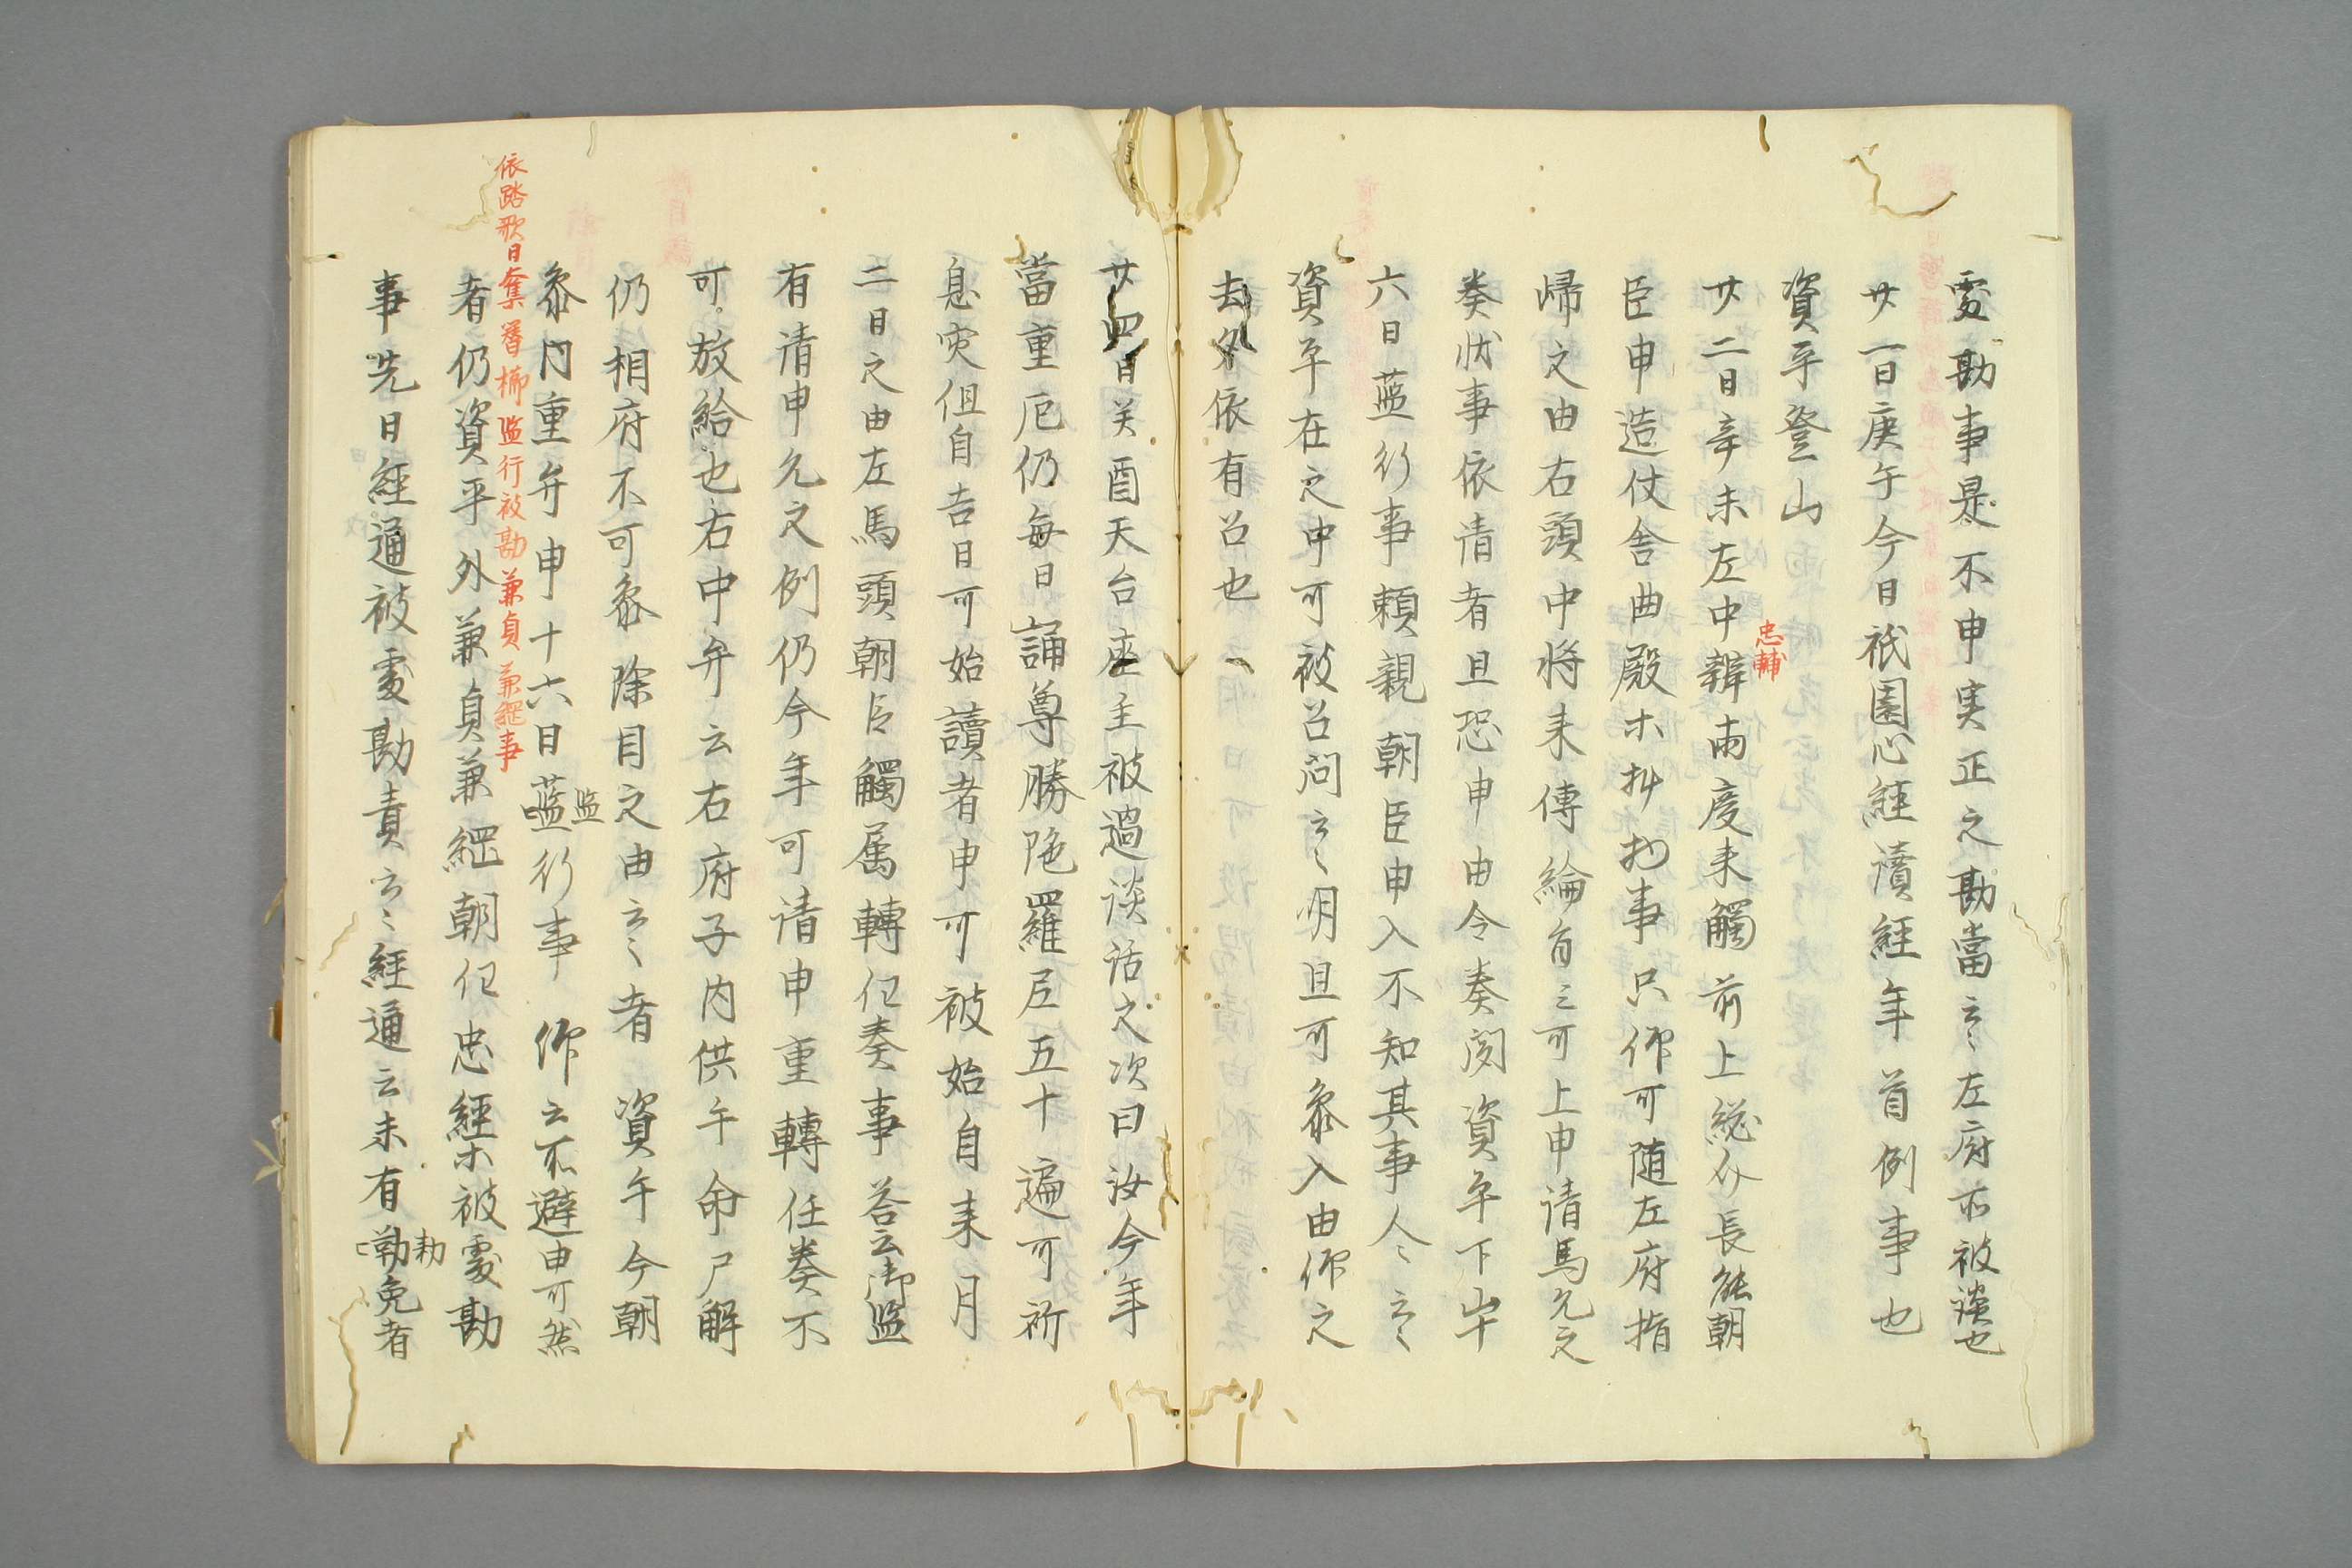 處勘事是不申実正之勘當云〻左府所被談也
廿一日庚午今日祇園心経讀経年首例事也
資平登山
廿二日辛未左中辨
忠輔
両度来觸前上総介長能朝
臣申造仗舎曲殿木事只仰可随左府指
帰之由右頭中将来傳綸旨云可上申請馬允之
奏状事依請者且恐申由令奏関資平下山
六日藍行事頼親朝臣申入不知其事人〻云〻
資平在之中可被召問云〻明且可参入由仰之
去外依有召也
廿四日癸酉天台座主被過談話之次曰汝今年
當重厄仍毎日誦尊勝陁羅尼五十遍可祈
息突但自吉日可始讀者申可被始自来月
二日之由左馬頭朝臣觸属轉任奏事答云御監
有請申允之例仍今年可請申重轉任奏不
可放給也右中弁云右府子内供午命尸解
仍相府不可参除目之由云〻者資平今朝
参内重弁申十六日藍
監
行事仰云不避申可然
依踏歌日奪署櫛监行被勘兼貞兼綱事
者仍資平外兼貞兼綱朝任忠経木被處勘
事先日経通被處勘責云〻経通云未有勅
勅
免者